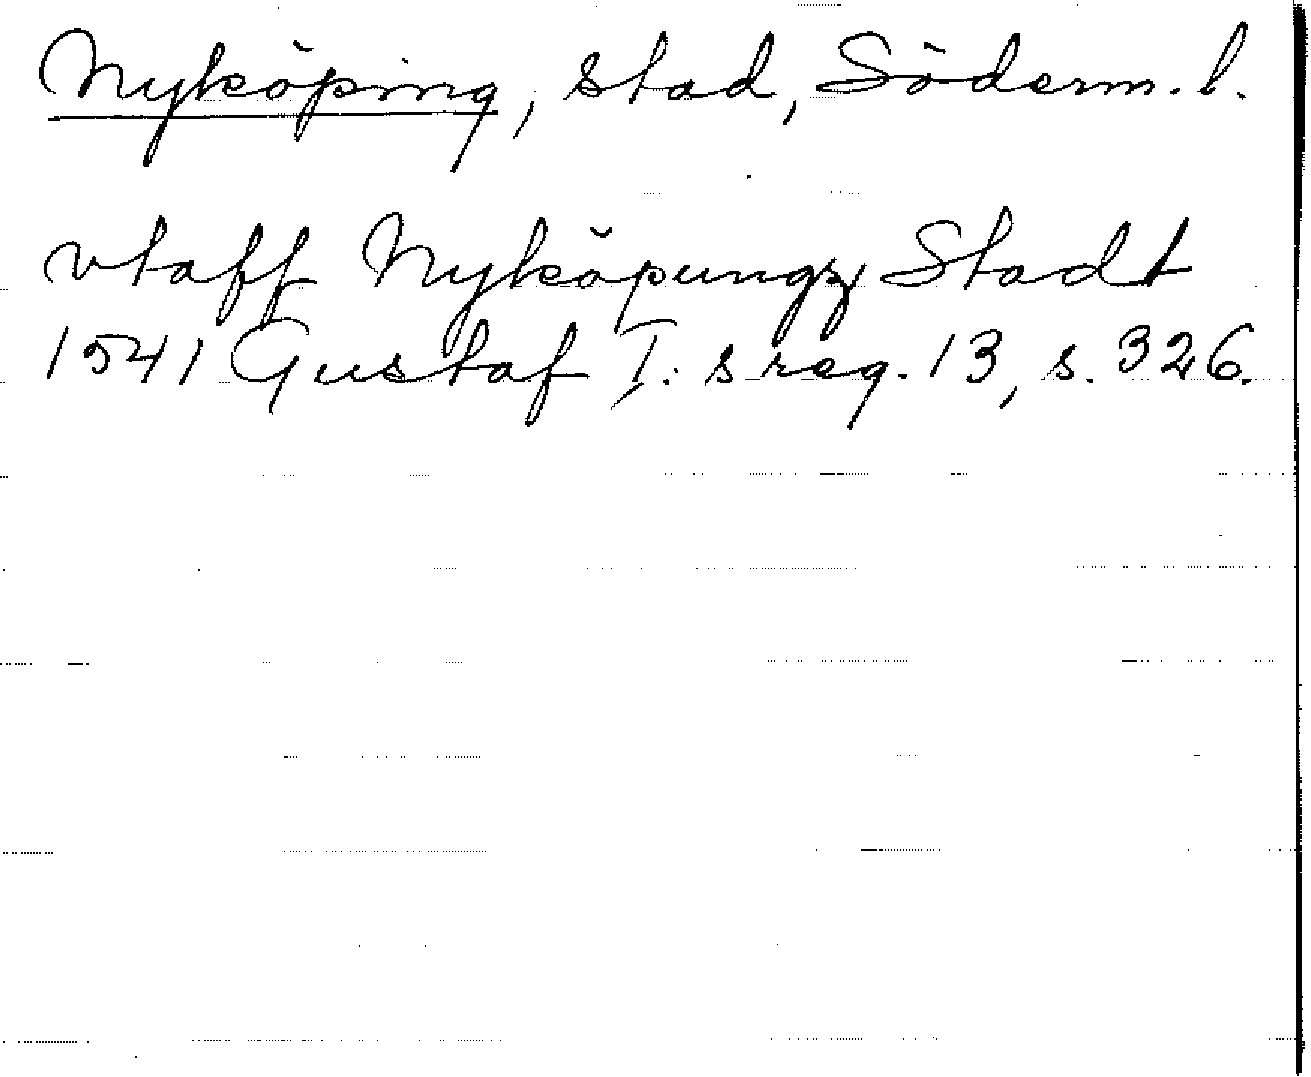 Nyköping, stad, Söderm. l.
vtaff Nyköpungz Stadt
1541 Gustaf I:s reg. 13, s. 326.